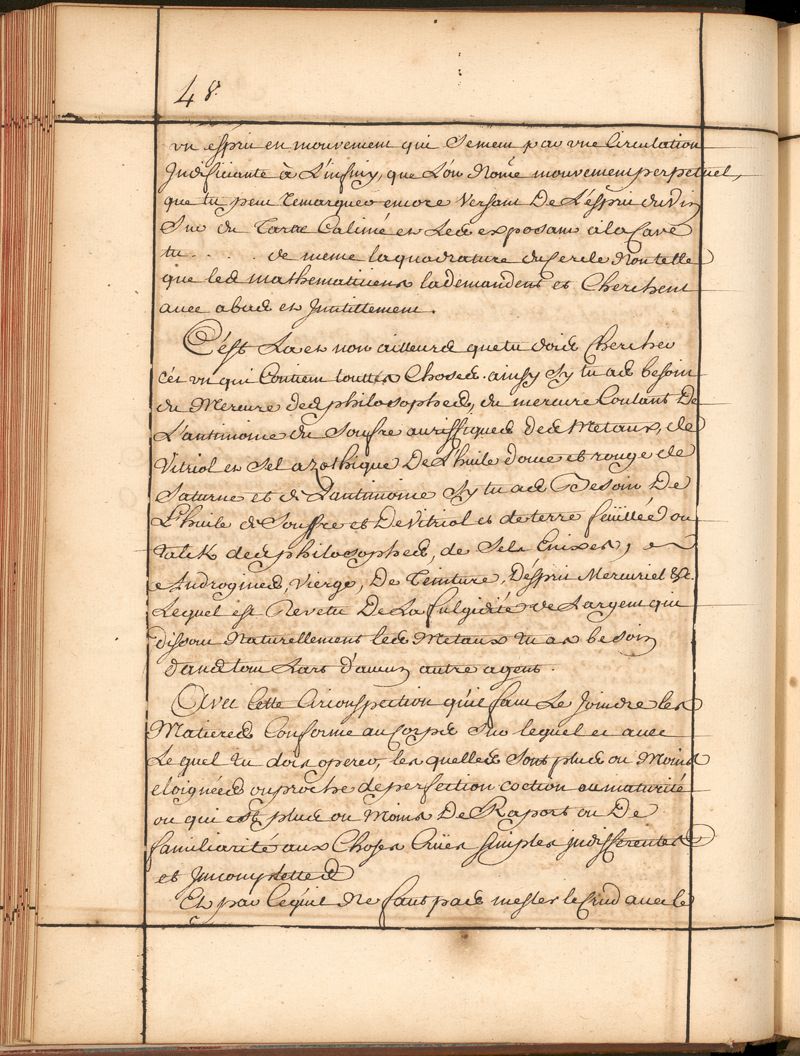 48.
un esprit en mouvement qui se meut par une Circulation
Indeficiante à L'infiny, que L'on Nome mouvement perpetuel,
que tu peux remarquer encore Versant De L'esprit du Vin
Sur du Tartre Calciné et Led exposant à la Cave
tu . . . . . de meme la quadrature du Cercle Non telle
que les mathematiciens la demandent et Cherchent
avec abus et Inutillement.
C'est La et non ailleurs que tu dois Chercher
cet un qui Contient touttes Choses. ainsy Sy tu as besoin
du Mercure des philosophes, du mercure Coulant De
L'antimoine du Soufre aurifiques des Metaux, de
Vitriol et Sel azothique De L'huile douce et rouge de
Saturne et de Lantimoine Sy tu as Besoin De
L'huile de Souffre et De Vitriol et de terre feüillée ou
talck des philosophes, de Sels Enixes, et
Androgines, Vierge, De Teinture, D'esprit Mercuriel &c.
Lequel est Revetu De La fulgidité de Largent qui
dissout Naturellement les Metaux tu as besoin
dans tout Lart d'aucun autre agent.
Avec Cette Circonspection qu'il faut Le Joindre les
Matieres Conforme au Corps Sur lequel et avec
Lequel tu dois operer, les quelles Sont plus ou Moins
eloignées ou proche de perfection coction ou maturité
ou qui est plus ou Moins De Raport ou De
familiarité aux Choses Crües simples indifferentes
et Incomplettes
Et par ce qu'il Ne faut pas mesler le Crud avec le